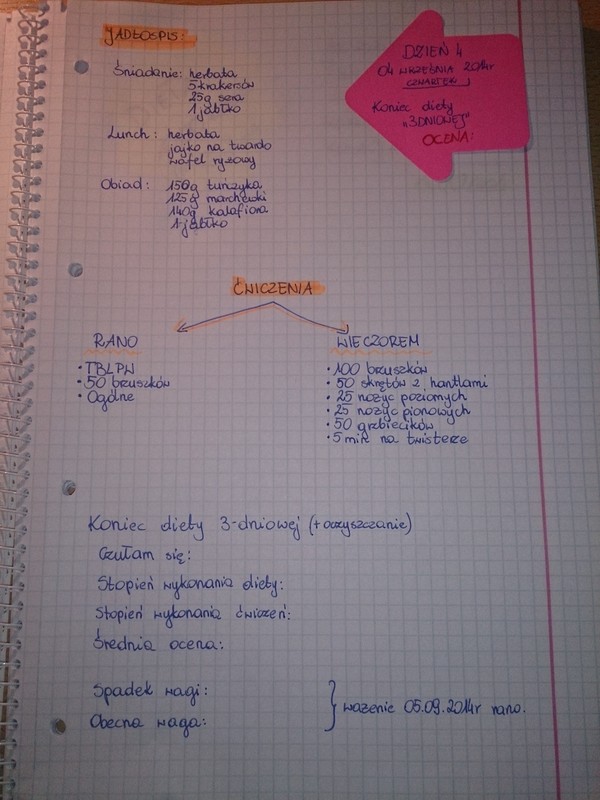 JADŁOSPIS:
Śniadanie: herbata
5 krakersów
25g sera
1 jabłko
Lunch: herbata
jajko na twardo
wafel ryżowy
Obiad: 150g tuńczyka
125g marchewki
140g kalafiora
1 jabłko
DZIEŃ 4
04 WRZEŚNIA 2014r
CZWARTEK
Koniec diety
"3DNIOWEJ"
OCENA:
ĆWICZENIA
RANO
• TBLPW
• 50 brzuszków
• Ogólne
WIECZOREM
• 100 brzuszków
• 50 skrętów z hantlami
• 25 nożyc poziomych
• 25 nożyc pionowych
• 50 grzbiecików
• 5 min na twisterze
Koniec diety 3-dniowej (+oczyszczanie)
Czułam się:
Stopień wykonania diety:
Stopień wykonania ćwiczeń:
Średnia ocena:
Spadek wagi:
Obecna waga:
} ważenie 05.09.2014r rano.